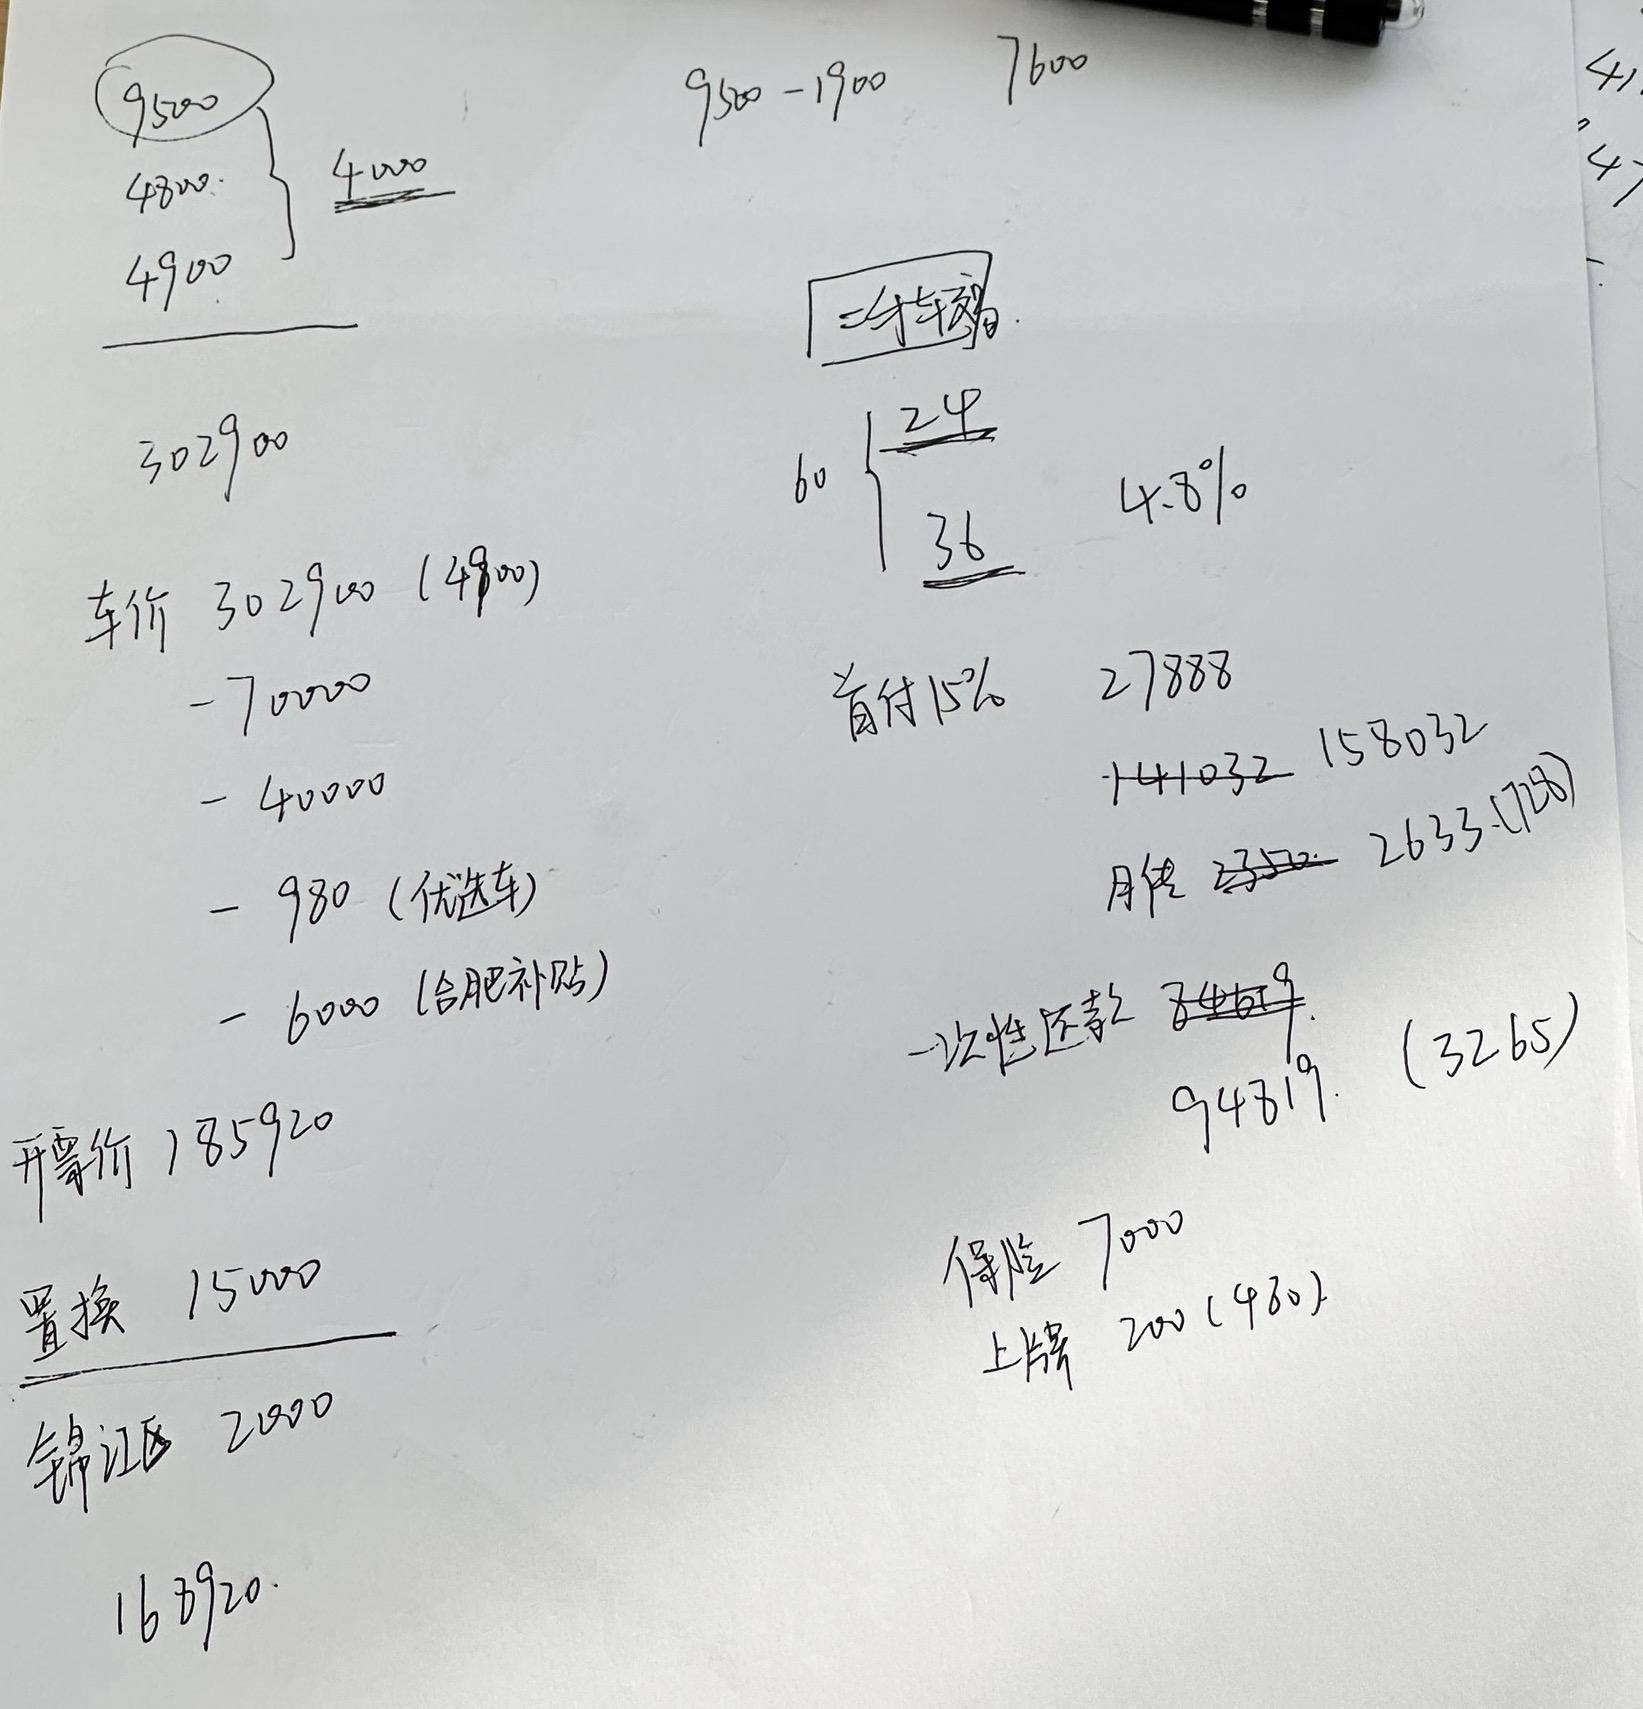 9500
4800
4900
4000
9500-1900 7600
302900
车价 302900 (4900)
-70000
- 40000
- 980 (优选车)
- 6000 (合肥补贴)
开票价 185920
置换 15000
锦江区 2000
168920.
二手车
60
24
36
4.8%
首付15% 27888
141032 158032
月供 2633.(728)
一次性还款
94819. (3265)
保险 7000
上牌 200 (480).